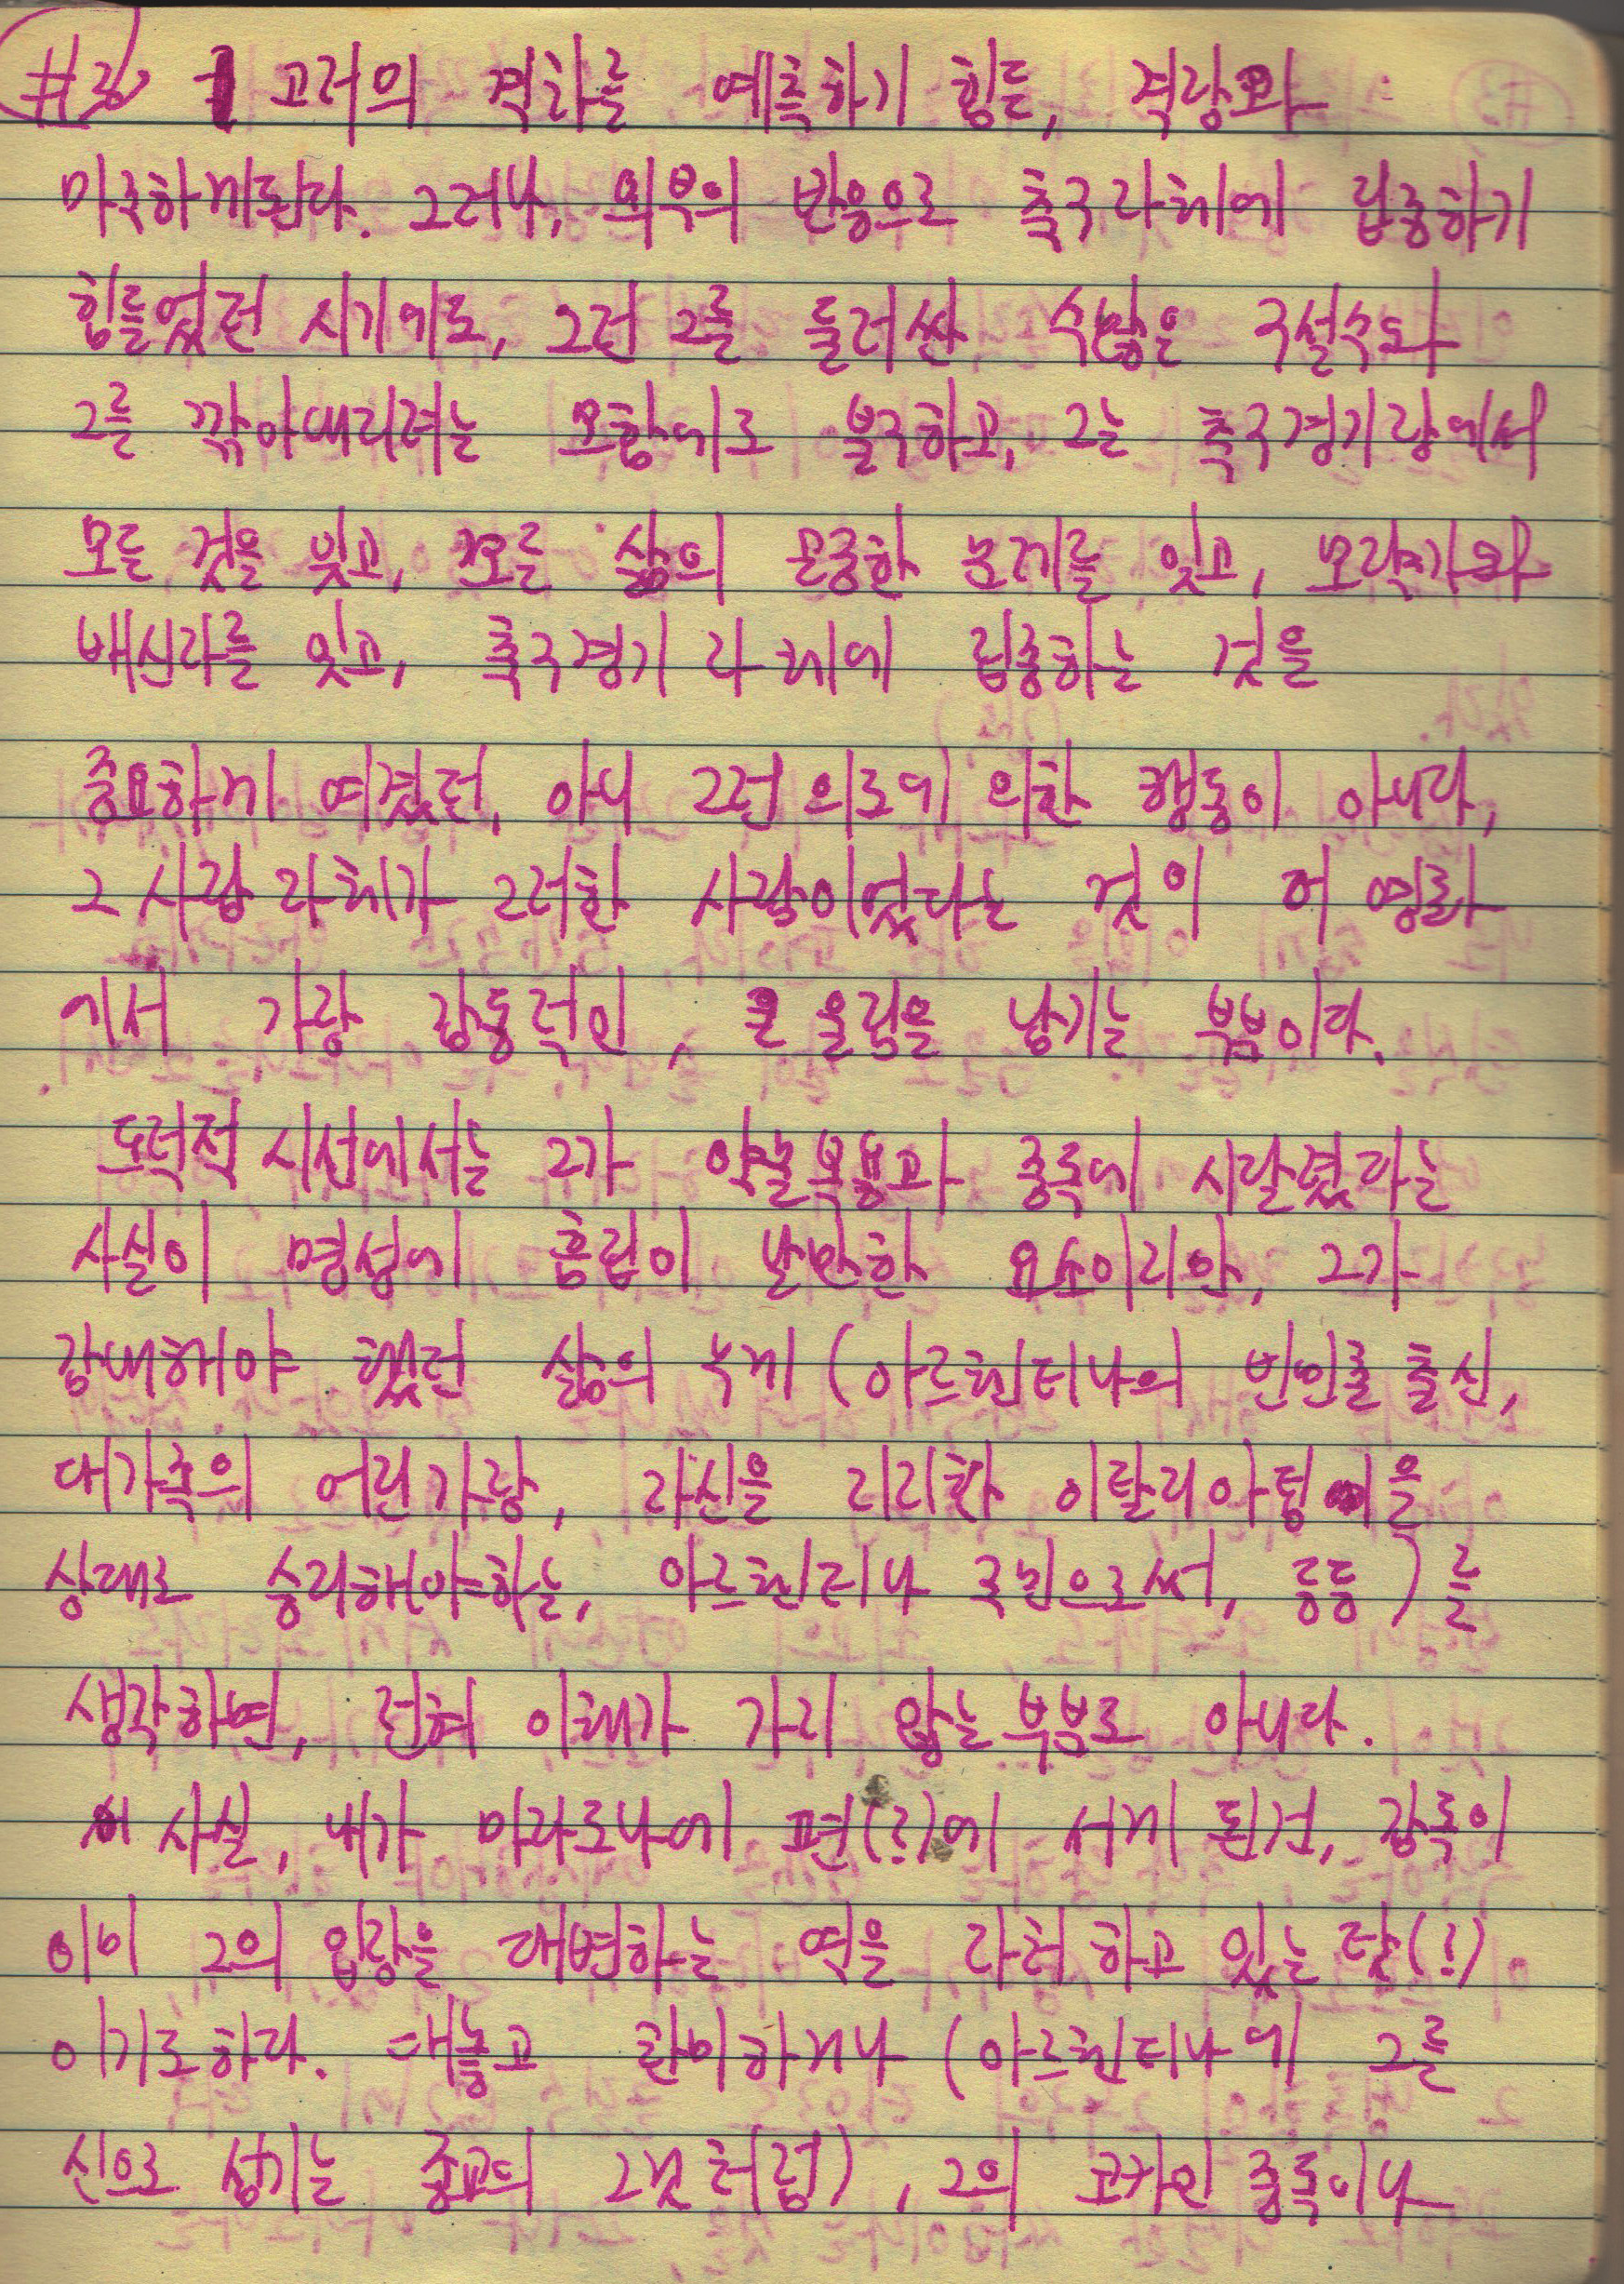 #3 고저의 격차를 예측하기 힘든, 격랑과
마주하게된다. 그러나, 외부의 반응으로 축구자체에 집중하기
힘들었던 시기에도, 그런 그를 둘러싼 수많은 구설수와
그를 깎아내리려는 모함에도 불구하고, 그는 축구경기장에서
모든 것을 잊고, 모든 삶의 온중한 문제를 잊고, 모략가와
배신자를 잊고, 축구경기 자체에 집중하는 것을
중요하게 여겼던, 아니 그런 의도에 의한 행동이 아니라,
그 사람 자체가 그러한 사람이었다는 것이 이 영화
에서 가장 감동적인, 큰 울림을 남기는 부분이다.
도덕적 시선에서는 그가 약물복용과 중독에 시달렸다는
사실이 명성에 흠집이 날만한 요소이리만, 그가
감내해야 했던 삶의 무게 (아르헨티나의 빈민촌 출신,
대가족의 어린가장, 자신을 지지한 이탈리아팀을
상대로 승리해야하는, 아르헨티나 국민으로써, 등등) 를
생각하면, 전혀 이해가 가지 않는 부분도 아니다.
사실, 내가 마라도나에 편(?)에 서게 된건, 감독이
이미 그의 입장을 대변하는 역을 자처하고 있는 탓(!)
이기도하다. 대놓고 찬미하거나 (아르헨티나에 그를
신으로 섬기는 종교의 그것처럼), 그의 코카인 중독이나